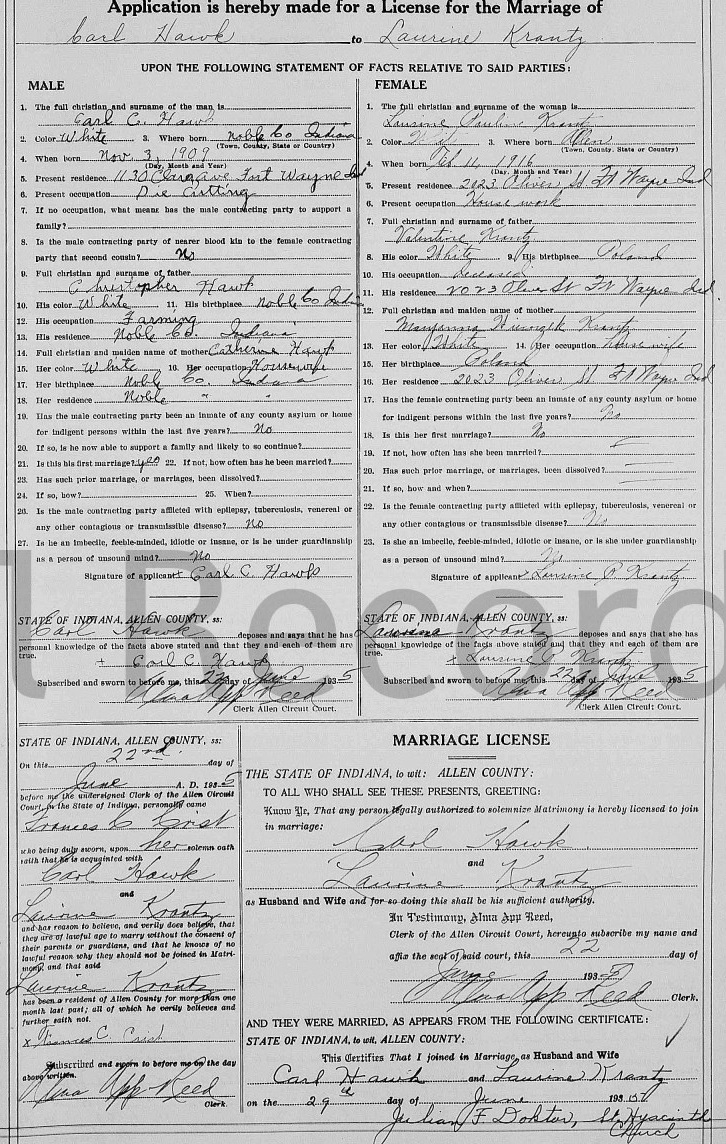 Application is hereby made for a License for the Marriage of
Carl Hawk to Laurine Krantz
UPON THE FOLLOWING STATEMENT OF FACTS RELATIVE TO SAID PARTIES:
MALE
1. The full christian and surname of the man is
Carl C. Hawk
2. Color White 3. Where born Noble Co Indiana
(Town, County, State or Country)
4. When born Nov. 3, 1909
(Day, Month and Year)
5. Present residence 1130 Clara Ave Fort Wayne Ind
6. Present occupation Die Cutting
7. If no occupation, what means has the male contracting party to support a
family?
8. Is the male contracting party of nearer blood kin to the female contracting
party than second cousin? No
9. Full christian and surname of father
Christopher Hawk
10. His color White 11. His birthplace Noble Co Indiana
12. His occupation Farming
13. His residence Noble Co. Indiana
14. Full christian and maiden name of mother Catherine Hawk
15. Her color White 16. Her occupation Housewife
17. Her birthplace Noble Co. Indiana
18. Her residence Noble " "
19. Has the male contracting party been an inmate of any county asylum or home
for indigent persons within the last five years? No
20. If so, is he now able to support a family and likely to so continue?
21. Is this his first marriage? yes 22. If not, how often has he been married?
23. Has such prior marriage, or marriages, been dissolved?
24. If so, how? 25. When?
26. Is the male contracting party afflicted with epilepsy, tuberculosis, venereal or
any other contagious or transmissible disease? No
27. Is he an imbecile, feeble-minded, idiotic or insane, or is he under guardianship
as a person of unsound mind? No
Signature of applicant x Carl C. Hawk
FEMALE
1. The full christian and surname of the woman is
Laurine Pauline Krantz
2. Color 3. Where born Allen
(Town, County, State or Country)
4. When born Feb 11, 1916
(Day, Month and Year)
5. Present residence 2023 Oliver St Ft Wayne Ind
6. Present occupation House work
7. Full christian and surname of father
Valentine Krantz
8. His color White 9. His birthplace Poland
10. His occupation Deceased
11. His residence 2023 Oliver St Ft Wayne Ind.
12. Full christian and maiden name of mother
Krantz
13. Her color White 14. Her occupation house wife
15. Her birthplace Poland
16. Her residence 2023 Oliver St Ft Wayne Ind
17. Has the female contracting party been an inmate of any county asylum or home
for indigent persons within the last five years? No
18. Is this her first marriage? No
19. If not, how often has she been married?
20. Has such prior marriage, or marriages, been dissolved?
21. If so, how and when?
22. Is the female contracting party afflicted with epilepsy, tuberculosis, venereal or
any other contagious or transmissible disease? No
23. Is she an imbecile, feeble-minded, idiotic or insane, or is she under guardianship
as a person of unsound mind? No
Signature of applicant x Laurine P. Krantz
l Recor
STATE OF INDIANA, ALLEN COUNTY, ss:
Carl Hawk deposes and says that he has
personal knowledge of the facts above stated and that they and each of them are
true.
x Carl C. Hawk
Subscribed and sworn to before me, this 22 day of June 1935
Alma App Reed
Clerk Allen Circuit Court.
STATE OF INDIANA, ALLEN COUNTY, ss:
Laurine Krantz deposes and says that she has
personal knowledge of the facts above stated and that they and each of them are
true.
x Laurine P. Krantz
Subscribed and sworn to before me, this 22 day of June 1935
Alma App Reed
Clerk Allen Circuit Court.
STATE OF INDIANA, ALLEN COUNTY, ss:
On this 22nd. day of
June A. D. 1935
before me the undersigned Clerk of the Allen Circuit
Court in the State of Indiana, personally came
Frances C Crist
who being duly sworn, upon her solemn oath
saith that he is acquainted with
Carl Hawk
and
Laurine Krantz
and has reason to believe, and verily does believe, that
they are of lawful age to marry without the consent of
their parents or guardians, and that he knows of no
lawful reason why they should not be joined in Matri-
mony, and that said
Laurine Krantz
has been a resident of Allen County for more than one
month last past; all of which he verily believes and
further saith not.
x Frances C. Crist
Subscribed and sworn to before me on the day
above written.
Alma App Reed
Clerk.
MARRIAGE LICENSE
THE STATE OF INDIANA, to wit: ALLEN COUNTY:
TO ALL WHO SHALL SEE THESE PRESENTS, GREETING:
Know Ye, That any person legally authorized to solemnize Matrimony is hereby licensed to join
in marriage:
Carl Hawk
and
Laurine Krantz
as Husband and Wife and for so doing this shall be his sufficient authority.
In Testimony, Alma App Reed,
Clerk of the Allen Circuit Court, hereunto subscribe my name and
affix the seal of said court, this 22 day of
June 1935
Alma App Reed Clerk.
AND THEY WERE MARRIED, AS APPEARS FROM THE FOLLOWING CERTIFICATE:
STATE OF INDIANA, to wit, ALLEN COUNTY:
This Certifies That I joined in Marriage as Husband and Wife
Carl Hawk and Laurine Krantz
on the 29th day of June 1935
Julian F. Doktor, St. Hyacinth
Church